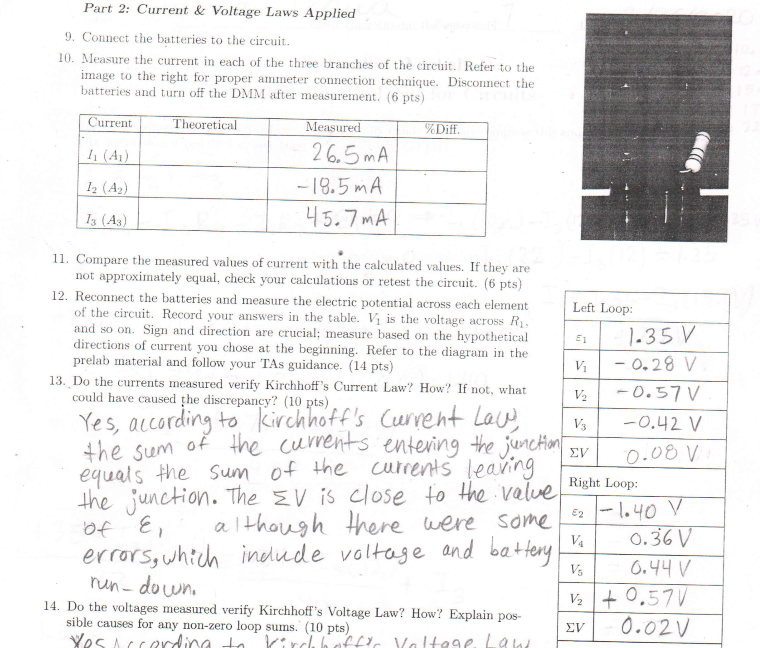 Part 2: Current & Voltage Laws Applied
9. Connect the batteries to the circuit.
10. Measure the current in each of the three branches of the circuit. Refer to the
image to the right for proper ammeter connection technique. Disconnect the
batteries and turn off the DMM after measurement. (6 pts)
Current Theoretical Measured %Diff.
I₁ (A₁) 26.5 mA
I₂ (A₂) -18.5 mA
I₃ (A₃) 45.7 mA
11. Compare the measured values of current with the calculated values. If they are
not approximately equal, check your calculations or retest the circuit. (6 pts)
12. Reconnect the batteries and measure the electric potential across each element
of the circuit. Record your answers in the table. V₁ is the voltage across R₁,
and so on. Sign and direction are crucial; measure based on the hypothetical
directions of current you chose at the beginning. Refer to the diagram in the
prelab material and follow your TAs guidance. (14 pts)
13. Do the currents measured verify Kirchhoff's Current Law? How? If not, what
could have caused the discrepancy? (10 pts)
Yes, according to Kirchhoff's Current Law,
the sum of the currents entering the junction
equals the sum of the currents leaving
the junction. The ΣV is close to the value
of ε, although there were some
errors, which include voltage and battery
run-down.
14. Do the voltages measured verify Kirchhoff's Voltage Law? How? Explain pos-
sible causes for any non-zero loop sums. (10 pts)
Yes According to Kirchhoff's Voltage Law
Left Loop:
ε₁ 1.35 V
V₁ -0.28 V
V₂ -0.57 V
V₃ -0.42 V
ΣV 0.08 V
Right Loop:
ε₂ -1.40 V
V₄ 0.36 V
V₅ 0.44 V
V₂ +0.57 V
ΣV 0.02 V